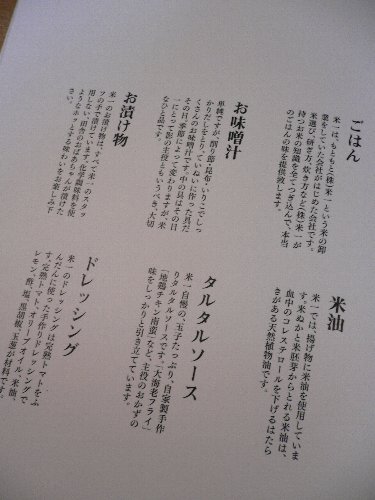 ごはん
米一は、もともと(株)米一という米の卸
業をしていた会社がはじめた会社です。
米選び、研ぎ方、炊き方など(株)米一が
持つお米の知識を全てつぎ込んで、本当
のごはんの味を提供致します。
お味噌汁
単純ですが、削り節・昆布・いりこでしっ
かりだしをとり、ていねいに作った具だ
くさんのお味噌汁です。中の具はその日
その日、季節によって変わりますが、米
一にとって影の主役ともいうべき、大切
なひと品です。
お漬け物
米一のお漬け物は、すべて米一のスタッ
フの手で漬けています。化学調味料を使
わない、田舎のおばあちゃんが漬けた
ようなホッとする味わいをお楽しみ下
さい。
米油
米一では、揚げ物に米油を使用していま
す。米ぬかと米胚芽からとれる米油は、
血中のコレステロールを下げるはたら
きがある天然植物油です。
タルタルソース
米一自慢の、玉子たっぷり、自家製手作
りタルタルソースです。「大海老フライ」
「地鶏チキン南蛮」など、主役のおかずの
味をしっかりと引き立ています。
ドレッシング
米一のドレッシングは完熟トマトをふ
んだんに使った手作りドレッシングで
す。完熟トマト、オリーブオイル、米油、
レモン、酢、塩、黒胡椒、玉葱が材料です。